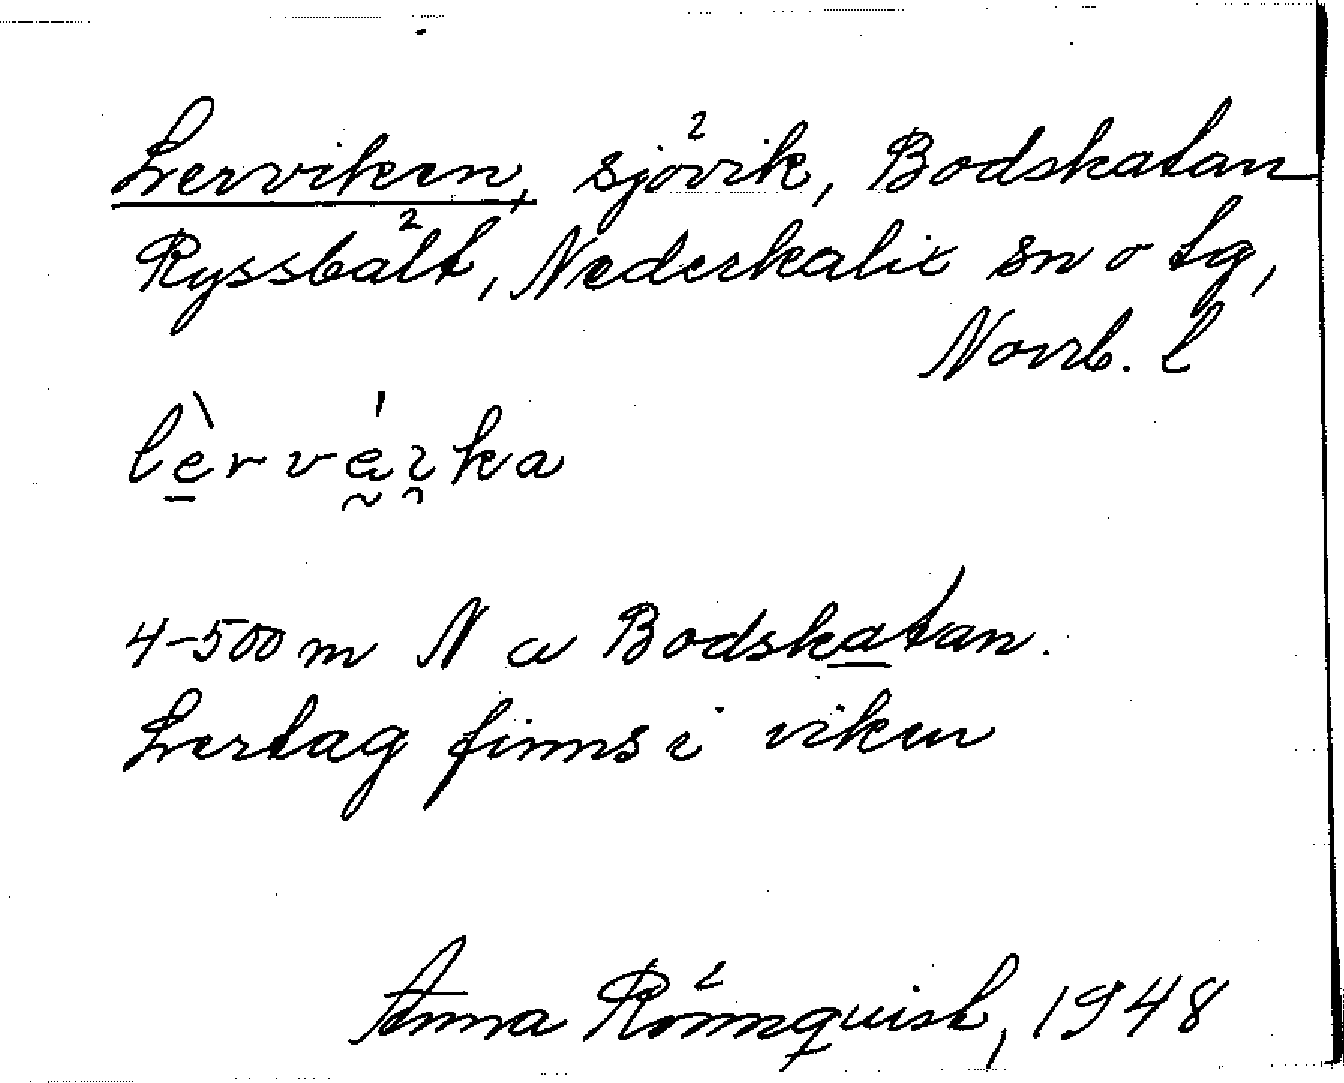 Lerviken, sjövik, Bodskatan
Ryssbält, Nederkalix sn o tg,
Norrb. l
lèrvä́ika
4-500 m N a Bodskatan.
Lertag finns i viken
Anna Rönnquist, 1948